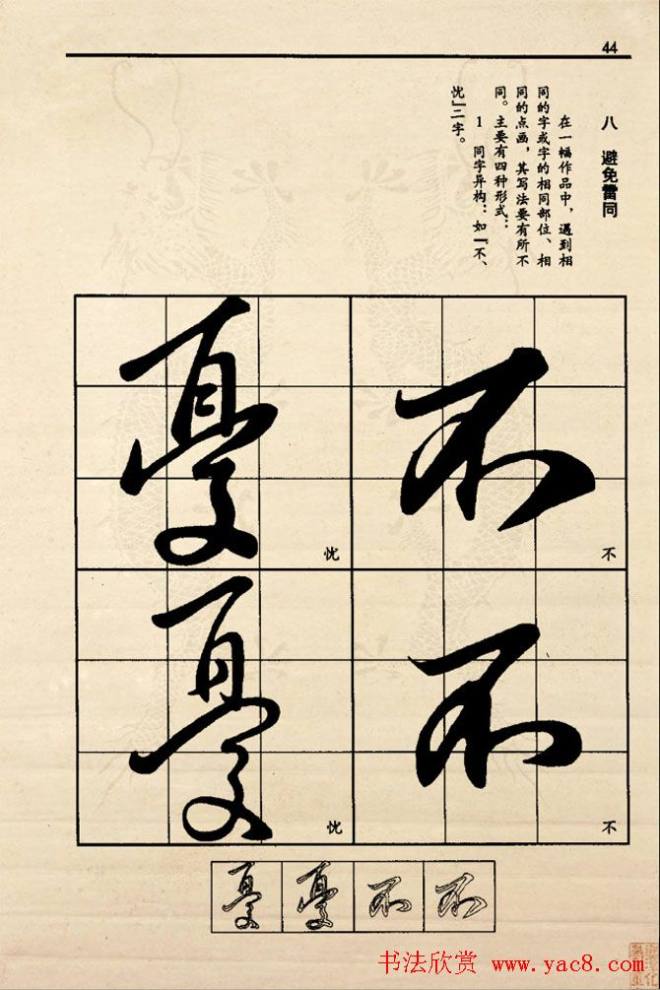 44
八 避免雷同
在一幅作品中，遇到相
同的字或字的相同部位、相
同的点画，其写法要有所不
同。主要有四种形式：
1 同字异构：如『不、
忧』二字。
不
不
不
不
憂
忧
憂
忧
不
不
憂
憂
书法欣赏 www.yac8.com